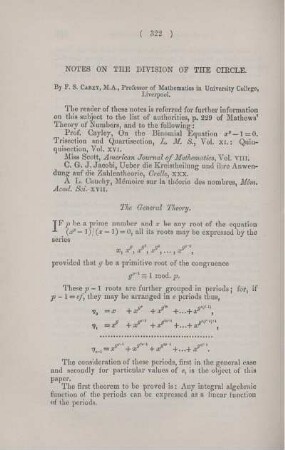 ( 322 )
NOTES ON THE DIVISION OF THE CIRCLE.
By F. S. CAREY, M.A., Professor of Mathematics in University College,
Liverpool.
The reader of these notes is referred for further information
on this subject to the list of authorities, p. 229 of Mathews'
Theory of Numbers, and to the following:
Prof. Cayley, On the Binomial Equation xᵖ−1=0.
Trisection and Quartisection, L. M. S., Vol. XI.: Quin-
quisection, Vol. XVI.
Miss Scott, American Journal of Mathematics, Vol. VIII.
C. G. J. Jacobi, Ueber die Kreistheilung und ihre Anwen-
dung auf die Zahlentheorie, Crelle, XXX.
A L. Cauchy, Mémoire sur la théorie des nombres, Mém.
Acad. Sci. XVII.
The General Theory.
IF p be a prime number and x be any root of the equation
(xᵖ−1)/(x−1)=0, all its roots may be expressed by the
series
provided that g be a primitive root of the congruence
gᵖ⁻¹≡1 mod. p.
These p−1 roots are further grouped in periods; for, if
p−1=ef, they may be arranged in e periods thus,
The consideration of these periods, first in the general case
and secondly for particular values of e, is the object of this
paper.
The first theorem to be proved is: Any integral algebraic
function of the periods can be expressed as a linear function
of the periods.